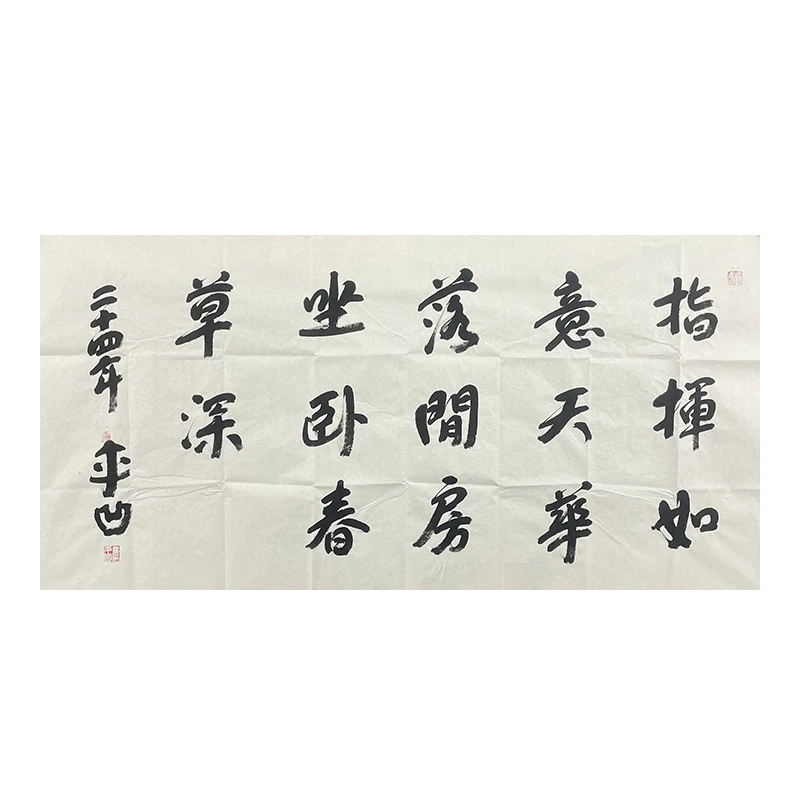 指揮如
意天華
落閒房
坐卧春
草深
二十四年 平凹